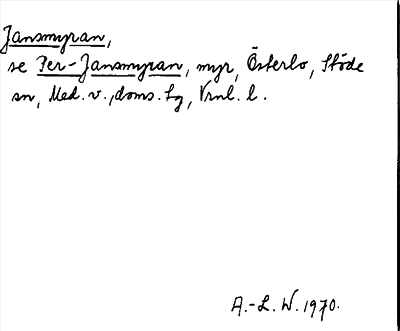 Jansmyran,
se Per-Jansmyran, myr, Österlo, Stöde
sn, Med. v., doms. tg, Vrnl. l.
A.-L. W. 1970.